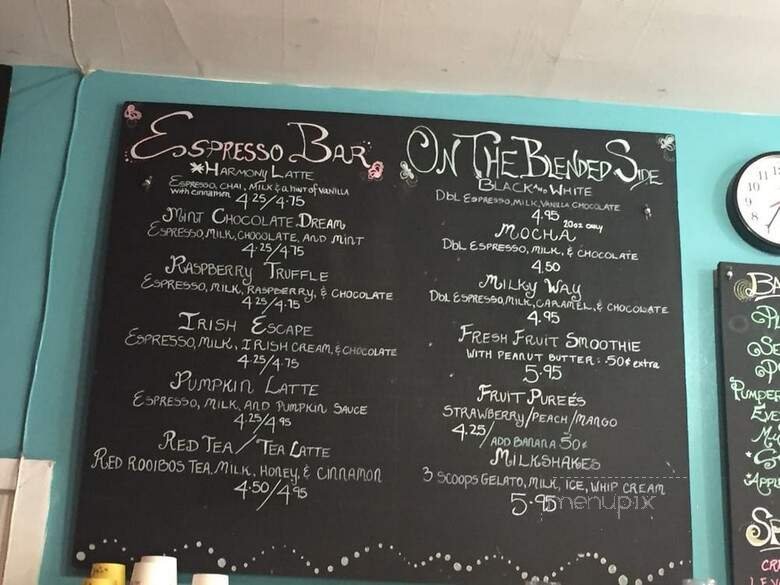 Espresso Bar
*Harmony Latte
Espresso, chai, milk & a hint of vanilla
with cinnamon 4.25/4.75
Mint Chocolate Dream
Espresso, milk, chocolate, and mint
4.25/4.75
Raspberry Truffle
Espresso, milk, raspberry, & chocolate
4.25/4.75
Irish Escape
Espresso, milk, Irish cream, & chocolate
4.25/4.75
Pumpkin Latte
Espresso, milk, and pumpkin sauce
4.25/4.95
Red Tea / Tea Latte
Red rooibos tea, milk, honey, & cinnamon
4.50/4.95
On The Blended Side
Black and White
Dbl espresso, milk, vanilla chocolate
4.95 20oz only
Mocha
Dbl espresso, milk, & chocolate
4.50
Milky Way
Dbl espresso, milk, caramel, & chocolate
4.95
Fresh Fruit Smoothie
with peanut butter: 50¢ extra
5.95
Fruit Pureés
Strawberry/peach/mango
4.25/add banana 50¢
Milkshakes
3 scoops gelato, milk, ice, whip cream
5.95
menupix
11
10
9
8
7